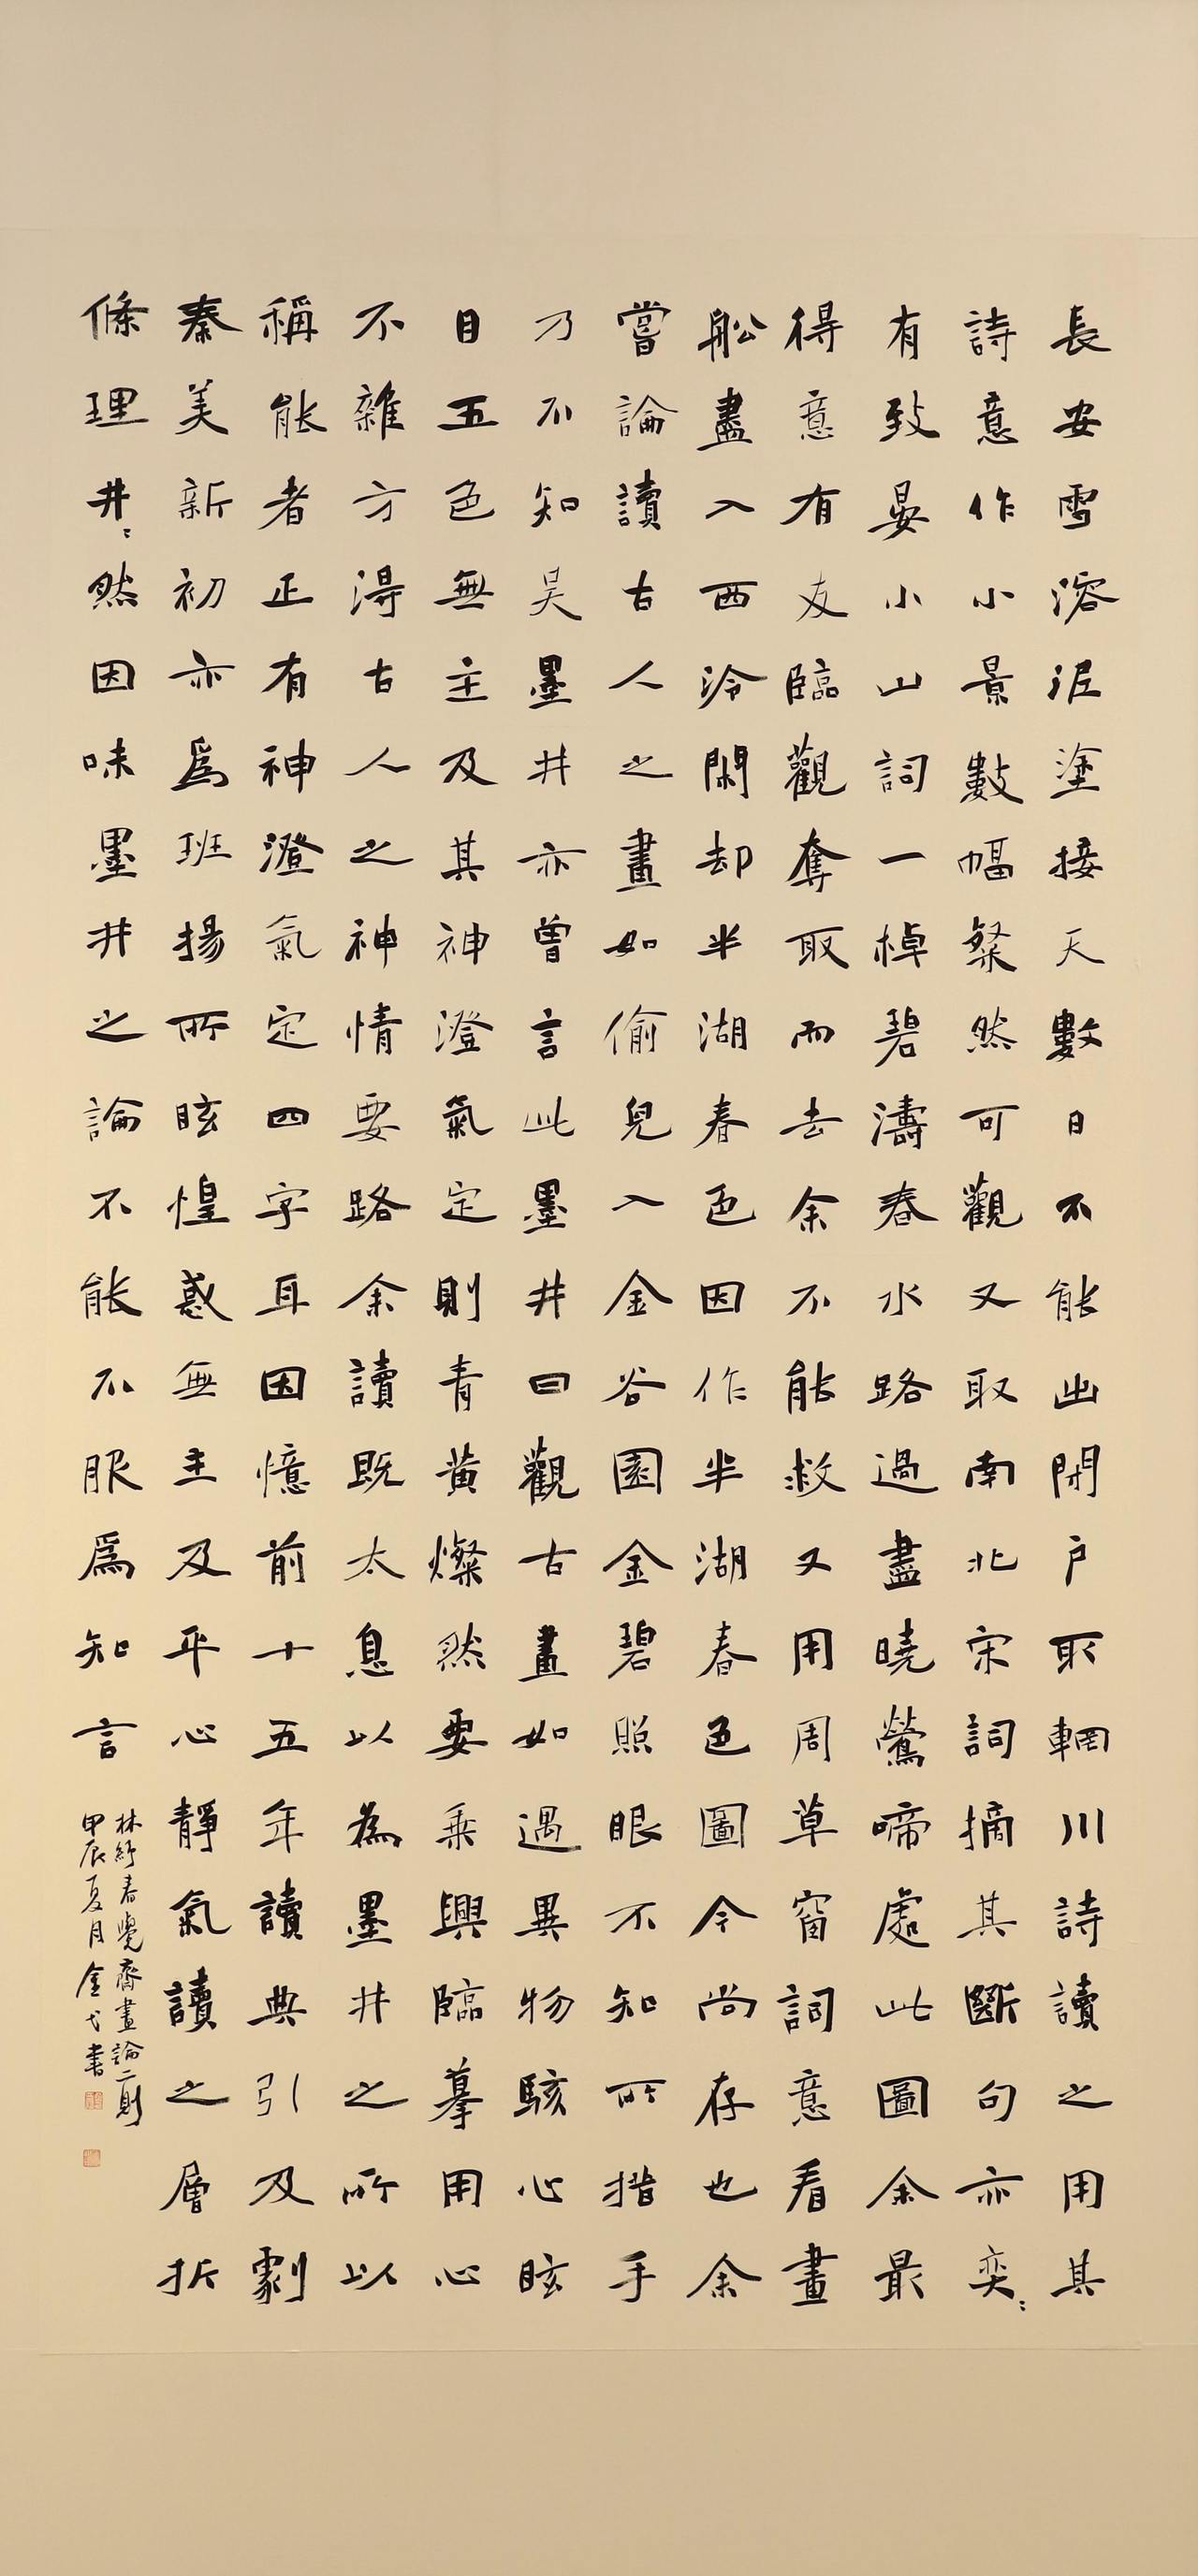 長安雪溶泥塗接天數日不能出閉户取輞川詩讀之用其
詩意作小景數幅粲然可觀又取南北宋詞摘其斷句亦奕〻
有致晏小山詞一棹碧濤春水路過盡曉鶯啼處此圖余最
得意有友臨觀奪取而去余不能救又用周草窗詞意看畫
舩盡入西泠閑却半湖春色因作半湖春色圖今尚存也余
嘗論讀古人之畫如偷兒入金谷園金碧照眼不知所措手
乃不知吴墨井亦曾言此墨井曰觀古畫如遇異物駭心眩
目五色無主及其神澄氣定則青黄燦然要乘興臨摹用心
不雜方得古人之神情要路余讀既太息以為墨井之所以
稱能者正有神澄氣定四字耳因憶前十五年讀典引及劇
秦美新初亦爲班揚所眩惶惑無主及平心靜氣讀之層折
條理井〻然因味墨井之論不能不服爲知言
林紓春覺齋畫論二則
甲辰夏月金弋書